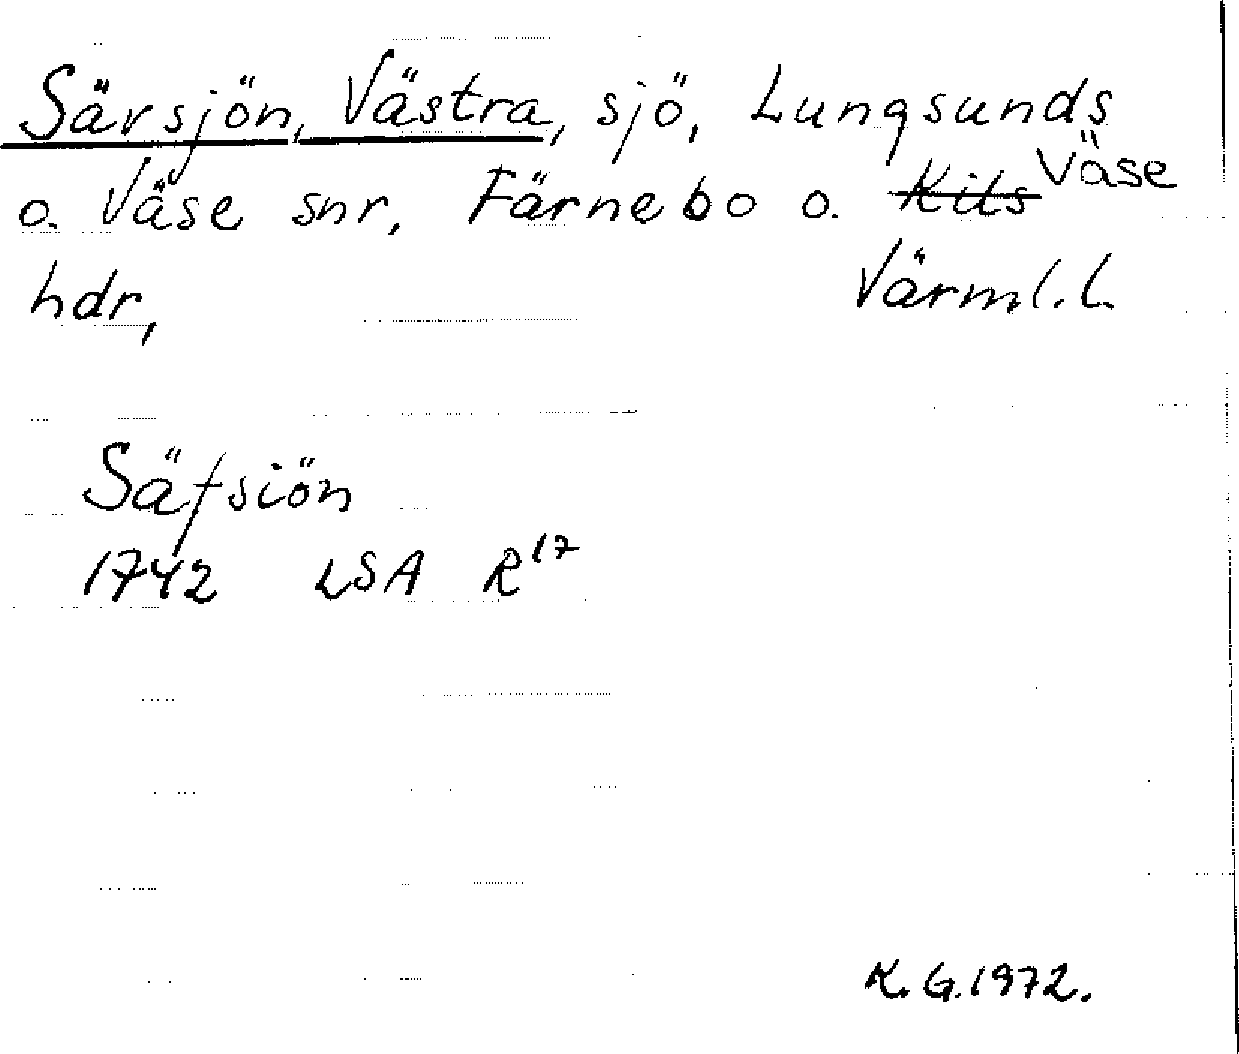 Särsjön, Västra, sjö, Lungsunds
o. Väse snr, Färnebo o. Kils Väse
hdr, Värml. l.
Säfsiön
1742 LSA R17
K. G. 1972.